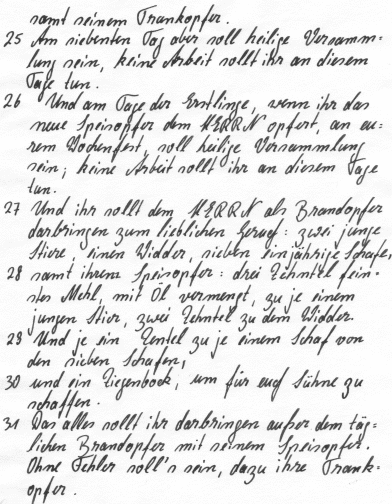 samt seinem Trankopfer.
25 Am siebenten Tag aber soll heilige Versamm=
lung sein, keine Arbeit sollt ihr an diesem
Tage tun.
26 Und am Tage der Erstlinge, wenn ihr das
neue Speisopfer dem HERRN opfert, an eu=
rem Wochenfest, soll heilige Versammlung
sein; keine Arbeit sollt ihr an diesem Tage
tun.
27 Und ihr sollt dem HERRN als Brandopfer
darbringen zum lieblichen Geruch: zwei junge
Stiere, einen Widder, sieben einjährige Schafe,
28 samt ihrem Speisopfer: drei Zehntel fein=
stes Mehl, mit Öl vermengt, zu je einem
jungen Stier, zwei Zehntel zu dem Widder
29 Und je ein Zentel zu je einem Schaf von
den sieben Schafen,
30 und ein Ziegenbock, um für euch Sühne zu
schaffen.
31 Das alles sollt ihr darbringen außer dem täg=
lichen Brandopfer mit seinem Speisopfer.
Ohne Fehler soll's sein, dazu ihre Trank=
opfer.